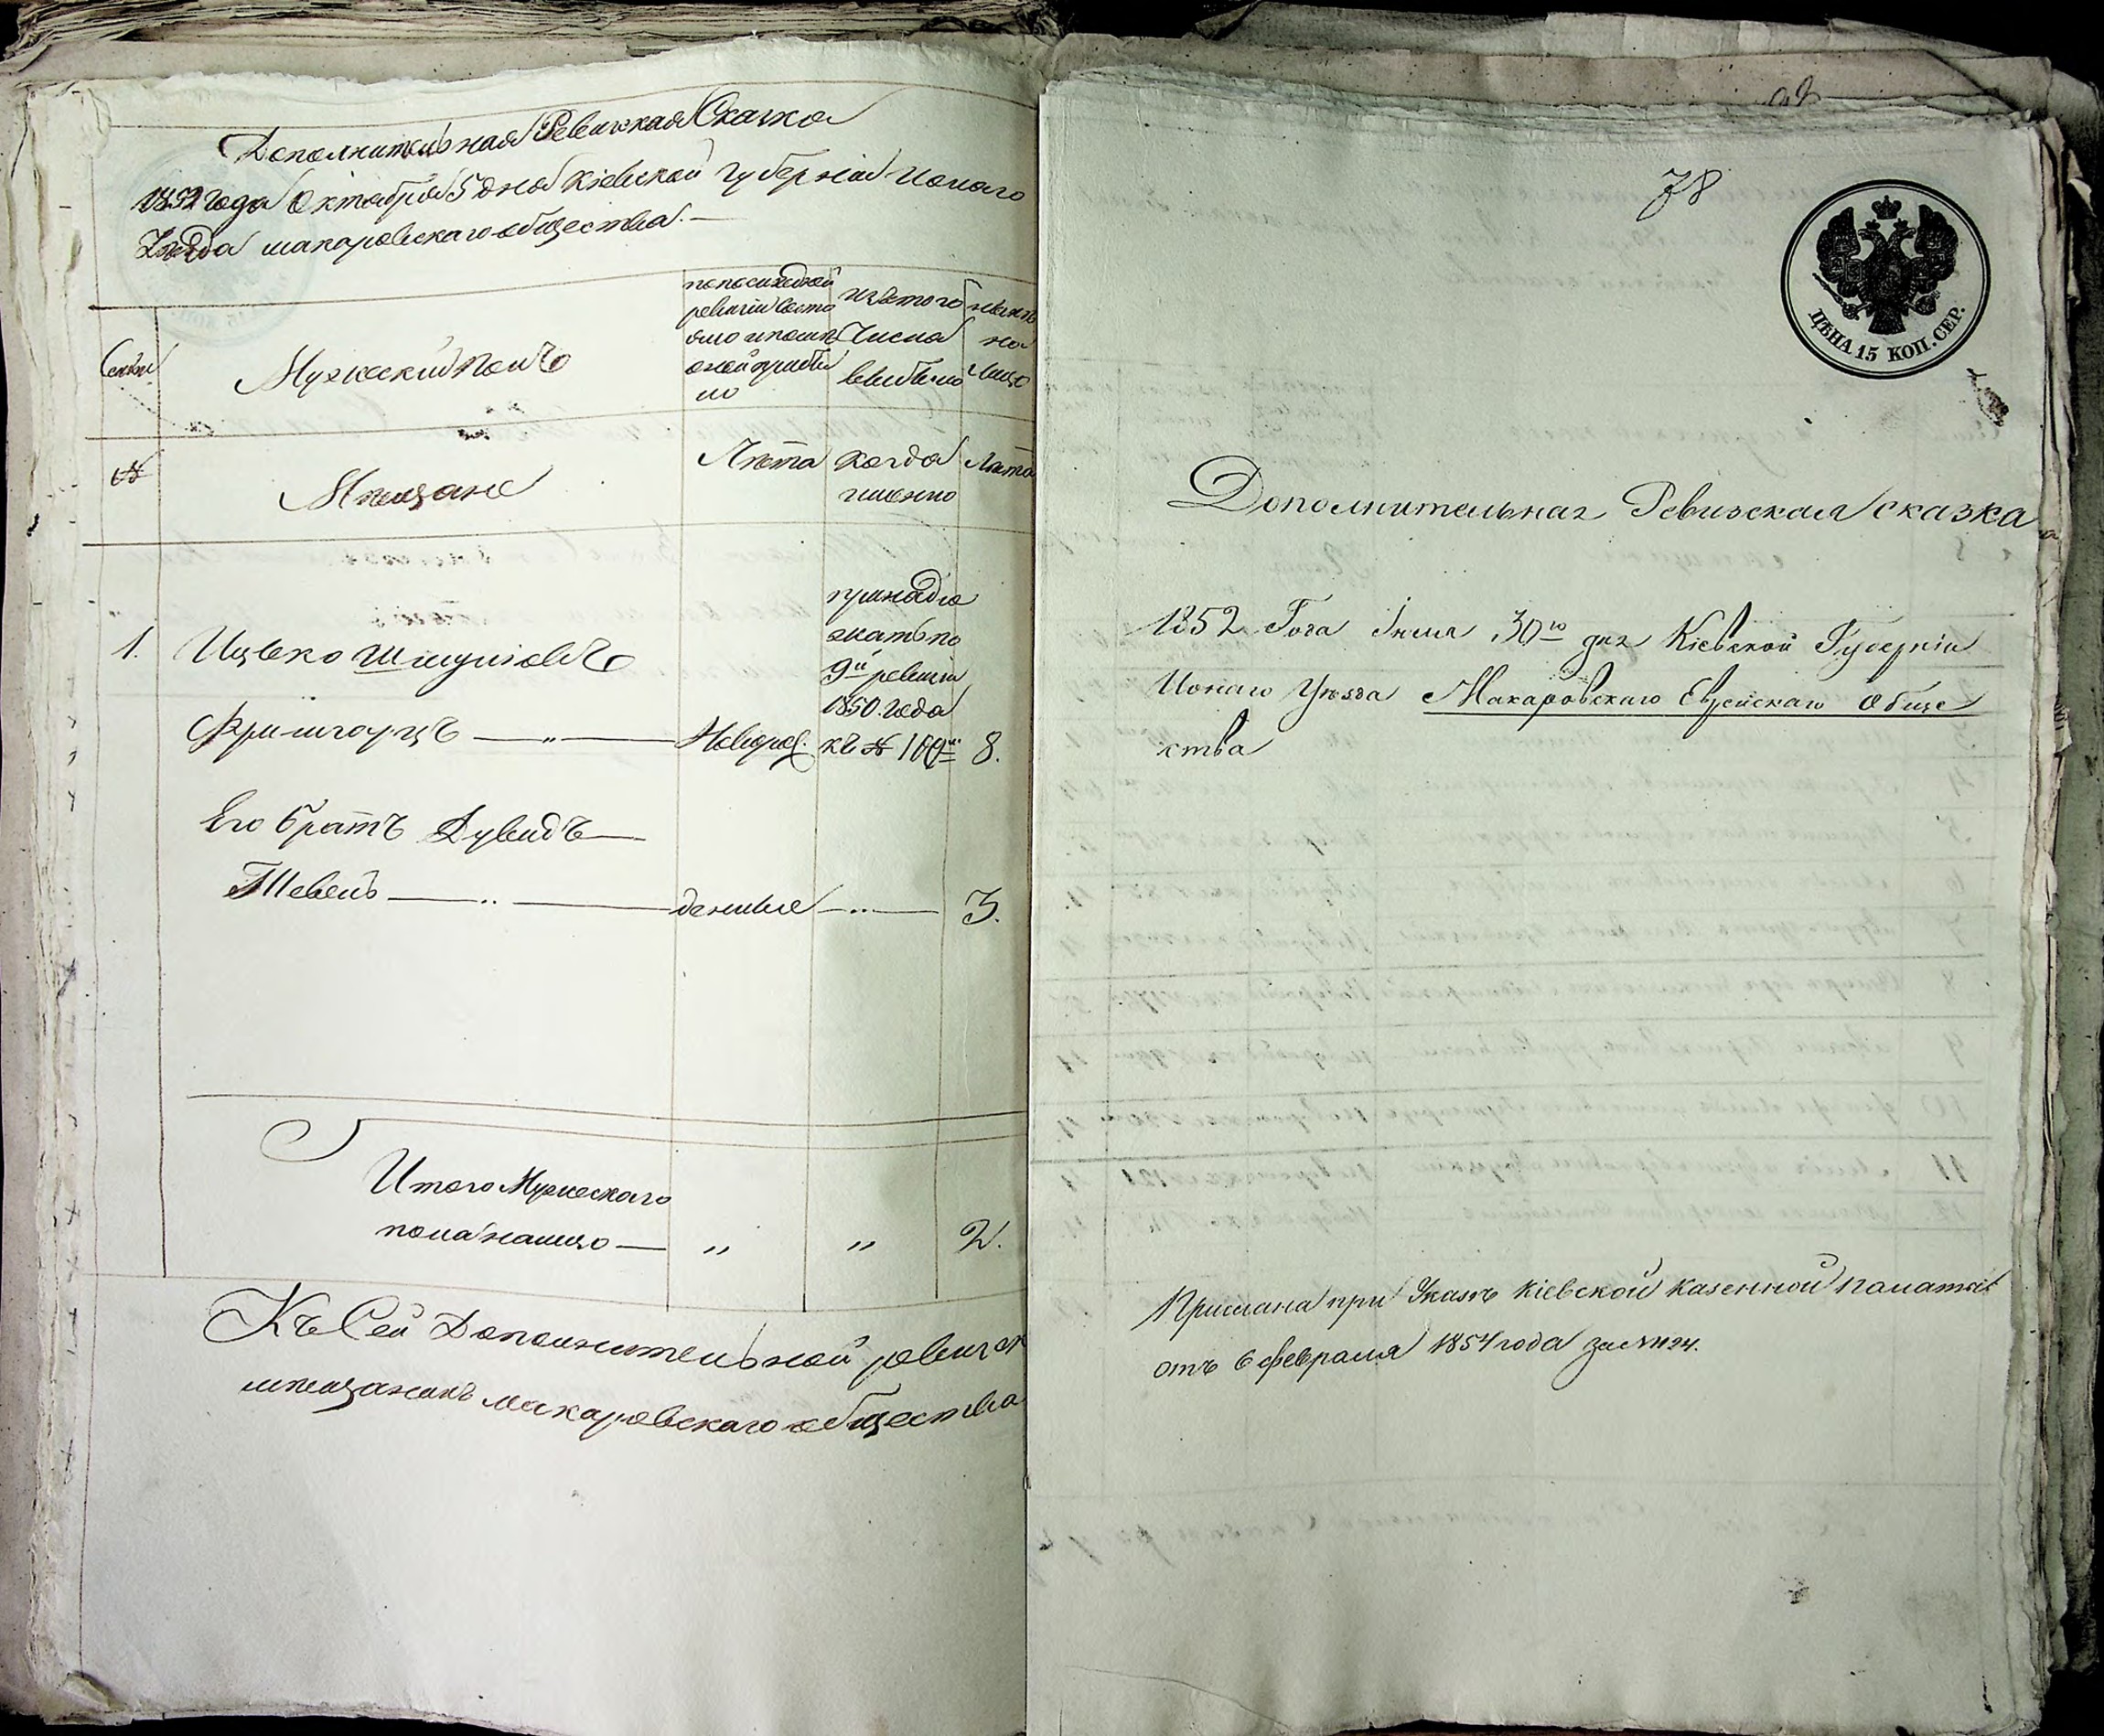 Дополнительная Ревизкая Сказка
1852 года Октября 5 дня Кіевской Губерніи Иоаго
Уѣзда макаровскаго общества. —
Семьи
Мужескій Полъ
по последней
ревизіи состо
яло и посля
оной прибы
ло
изъ того
Числа
выбыло
ныне
на
Лицо
№
Мѣщане
Лѣта
когда
именно
Лѣта
1.
Ицько Шмуліовъ
Фримгорцъ — „ — Новорож.
принадле
жатъ по
9й ревизіи
1850. года
къ № 100му
8.
Его братъ Дувидъ —
Шевель — „ — денные — „ — 3.
Итого Мужескаго
пола налицо — „ „ 2.
Къ Сей Дополнительной ревизск
мѣщанинъ макаровскаго общества
78
ЦѢНА 15 КОП. СЕР.
Дополнительная Ревизская сказка
1852 Года Іюля 30го дня Кіевской Губерніи
Уѣзда Макаровскаго Еврейскаго Обще
ства
Прислана при Указѣ Кіевской Казенной Палаты
отъ 6 февраля 1854 года за №